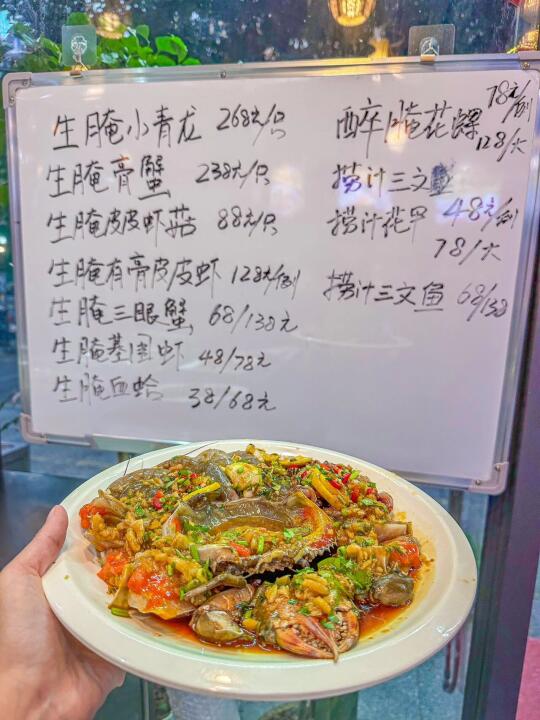 生腌小青龙 268元/只
生腌膏蟹 238元/只
生腌皮皮虾菇 88元/只
生腌有膏皮皮虾 128元/例
生腌三眼蟹 68/138元
生腌基围虾 48/78元
生腌血蛤 38/68元
醉腌花螺 78元/例
128/大
捞汁三文
捞汁花甲 48元/例
78/大
捞汁三文鱼 68/138